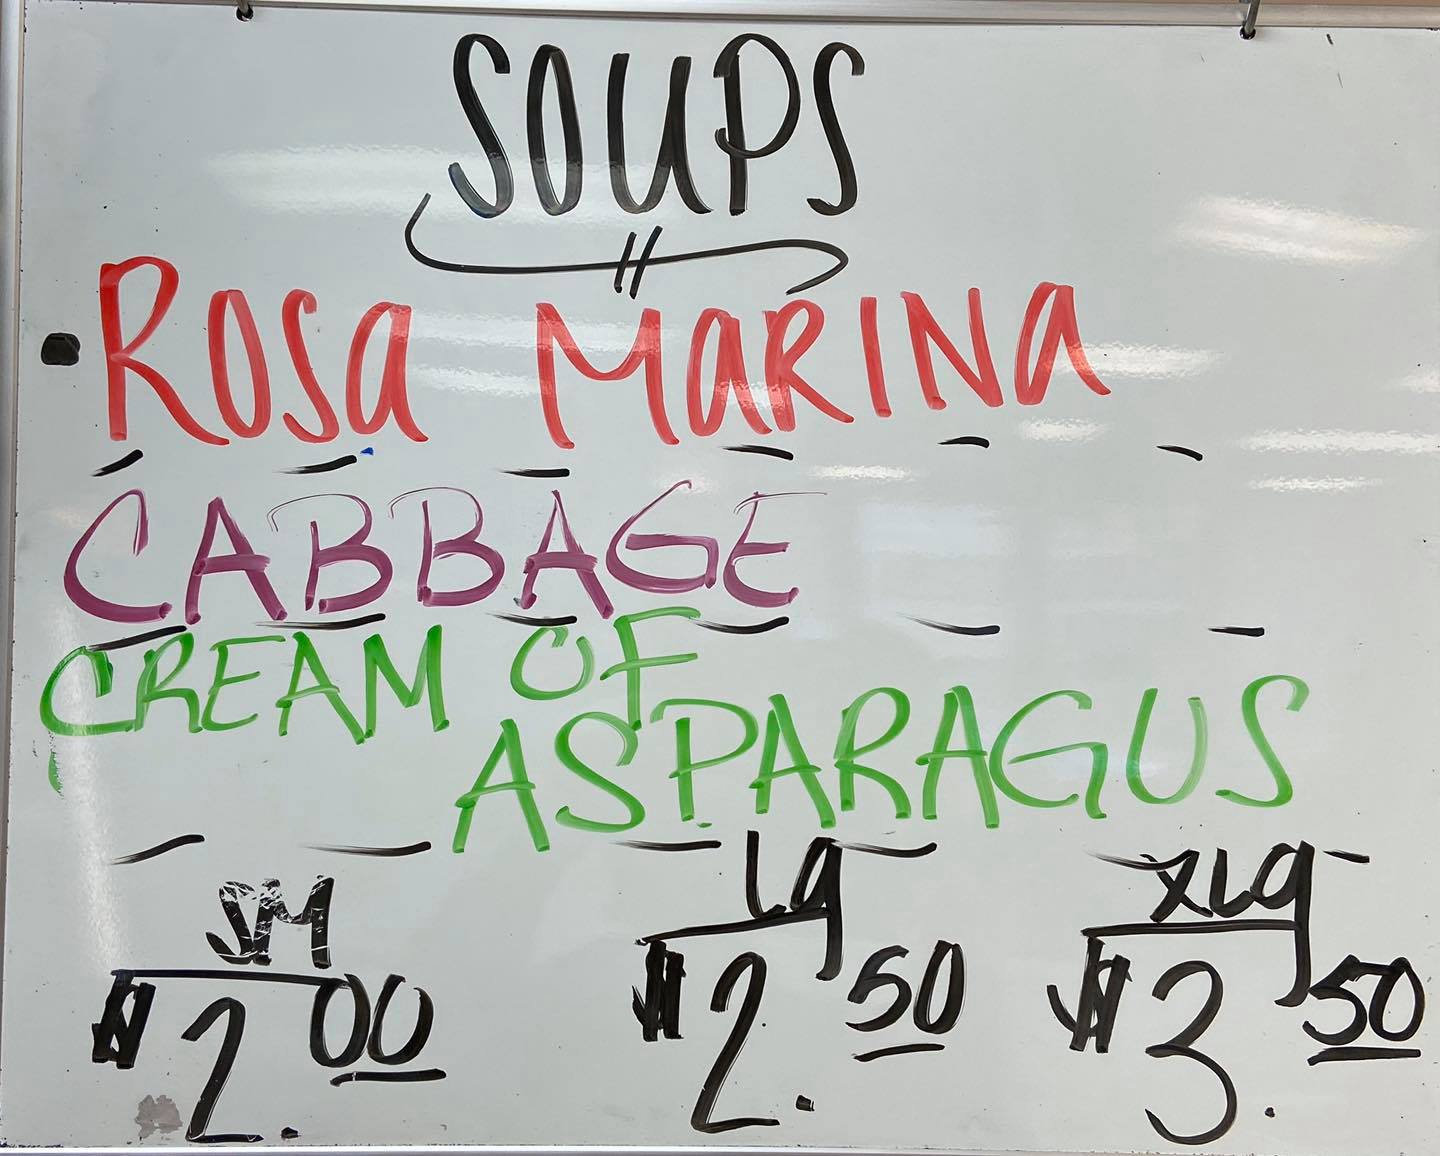 SOUPS
ROSA MARINA
CABBAGE
CREAM OF
ASPARAGUS
SM Lg XLg
$2.00 $2.50 $3.50